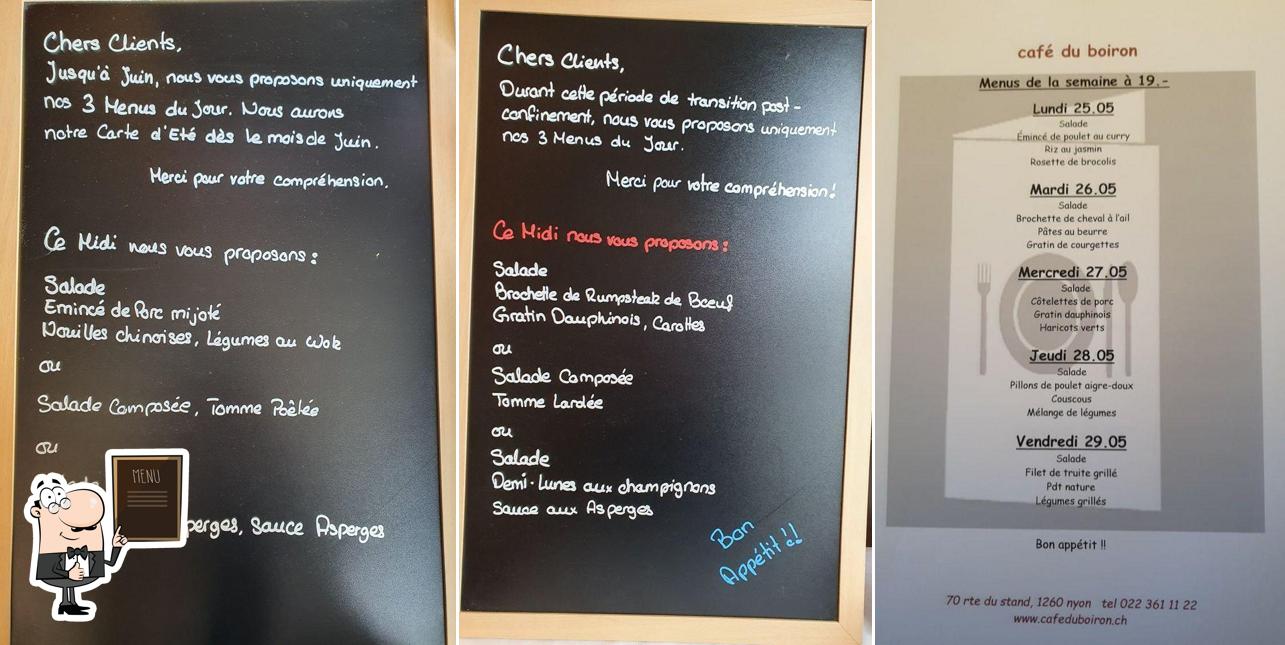 Chers Clients,
Jusqu'à Juin, nous vous proposons uniquement
nos 3 Menus du Jour. Nous aurons
notre Carte d'Eté dès le mois de Juin.
Merci pour votre compréhension.
Ce Midi nous vous proposons :
Salade
Emincé de Porc mijoté
Nouilles chinoises, Légumes au Wok
ou
Salade Composée, Tomme Poêlée
ou
perges, Sauce Asperges
MENU
Chers Clients,
Durant cette période de transition post-
confinement, nous vous proposons uniquement
nos 3 Menus du Jour.
Merci pour votre compréhension!
Ce Midi nous vous proposons :
Salade
Brochette de Rumpsteak de Bœuf
Gratin Dauphinois, Carottes
ou
Salade Composée
Tomme Lardée
ou
Salade
Demi-Lunes aux champignons
Sauce aux Asperges
Bon
Appétit !!
café du boiron
Menus de la semaine à 19.-
Lundi 25.05
Salade
Émincé de poulet au curry
Riz au jasmin
Rosette de brocolis
Mardi 26.05
Salade
Brochette de cheval à l'ail
Pâtes au beurre
Gratin de courgettes
Mercredi 27.05
Salade
Côtelettes de porc
Gratin dauphinois
Haricots verts
Jeudi 28.05
Salade
Pillons de poulet aigre-doux
Couscous
Mélange de légumes
Vendredi 29.05
Salade
Filet de truite grillé
Pdt nature
Légumes grillés
Bon appétit !!
70 rte du stand, 1260 nyon tel 022 361 11 22
www.cafeduboiron.ch